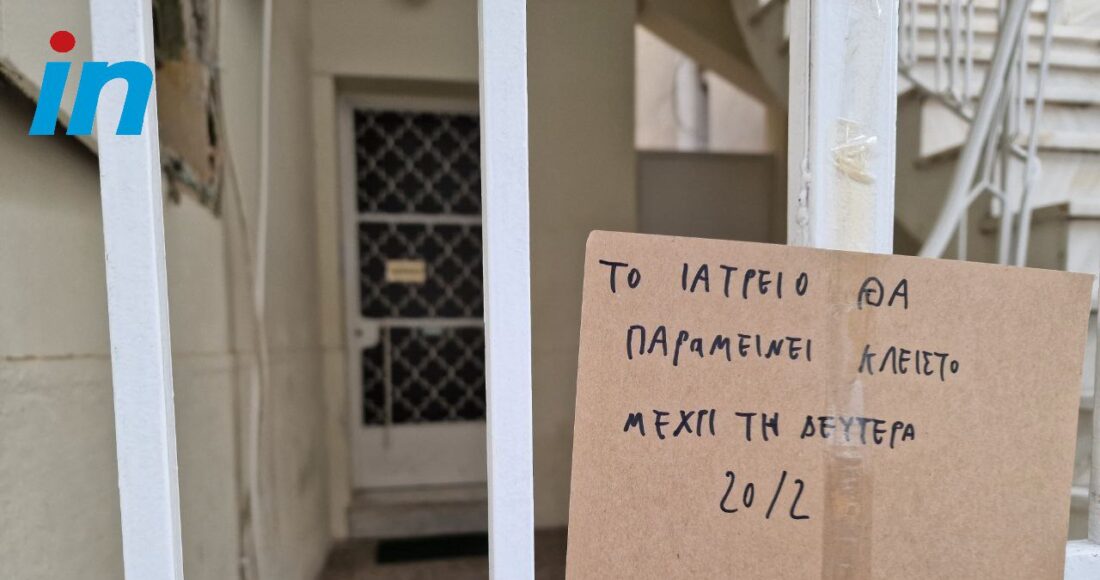 in
ΤΟ ΙΑΤΡΕΙΟ ΘΑ
ΠΑΡαΜΕΙΝΕΙ ΚΛΕΙΣΤΟ
ΜΕΧΡΙ ΤΗ ΔΕΥΤΕΡΑ
20/2